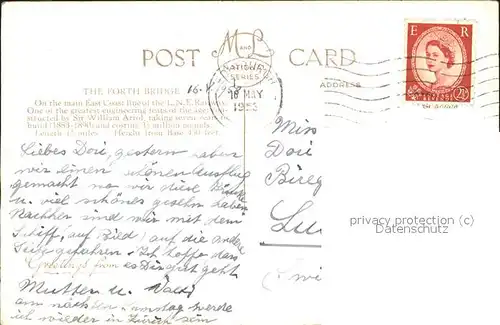 POST CARD
M AND L
NATIONAL
SERIES
ADDRESS
E R
2½D
16 MAY
1953
THE FORTH BRIDGE 16.V.1953
On the main East Coast line of the L.N.E. Railway.
One of the greatest engineering feats of the age, con-
structed by Sir William Arrol, taking seven years to
build (1883-1890) and costing 3½ million pounds.
Length 1½ miles. Height from Base 450 feet.
Liebes Dori, gestern haben
wir einen schönen Ausflug
gemacht wo wir diese Brücke
u. viel schönes gesehen haben
Nachher sind wir mit dem
Schiff, (auf Bild) auf die andere
Seite gefahren. Ich hoffe dass
Greetings from es Dir gut geht
Mutter u.
am nächsten Samstag werde
ich wieder in Zürich sein
Miss
Dori
Bireg
Lu
(Swi
privacy protection (c)
Datenschutz